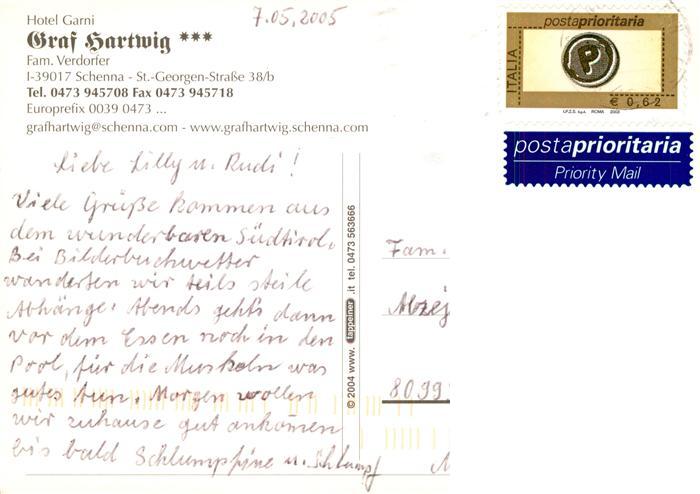 Hotel Garni
Graf Hartwig ***
Fam. Verdorfer
I-39017 Schenna - St.-Georgen-Straße 38/b
Tel. 0473 945708 Fax 0473 945718
Europrefix 0039 0473 ...
grafhartwig@schenna.com - www.grafhartwig.schenna.com
7.05.2005
postaprioritaria
ITALIA
P
€ 0,62
I.P.Z.S. S.p.A. ROMA 2003
postaprioritaria
Priority Mail
Liebe Lilly u. Rudi!
Viele Grüße kommen aus
dem wunderbaren Südtirol.
Bei Bilderbuchwetter
wanderten wir teils steile
Abhänge. Abends geht's dann
vor dem Essen noch in den
Pool, für die Muskeln was
gutes tun. Morgen wollen
wir zuhause gut ankommen
bis bald Schlumpfine u. Schlumpf
© 2004 www. tappeiner .it tel. 0473 563666
Fam.
8099